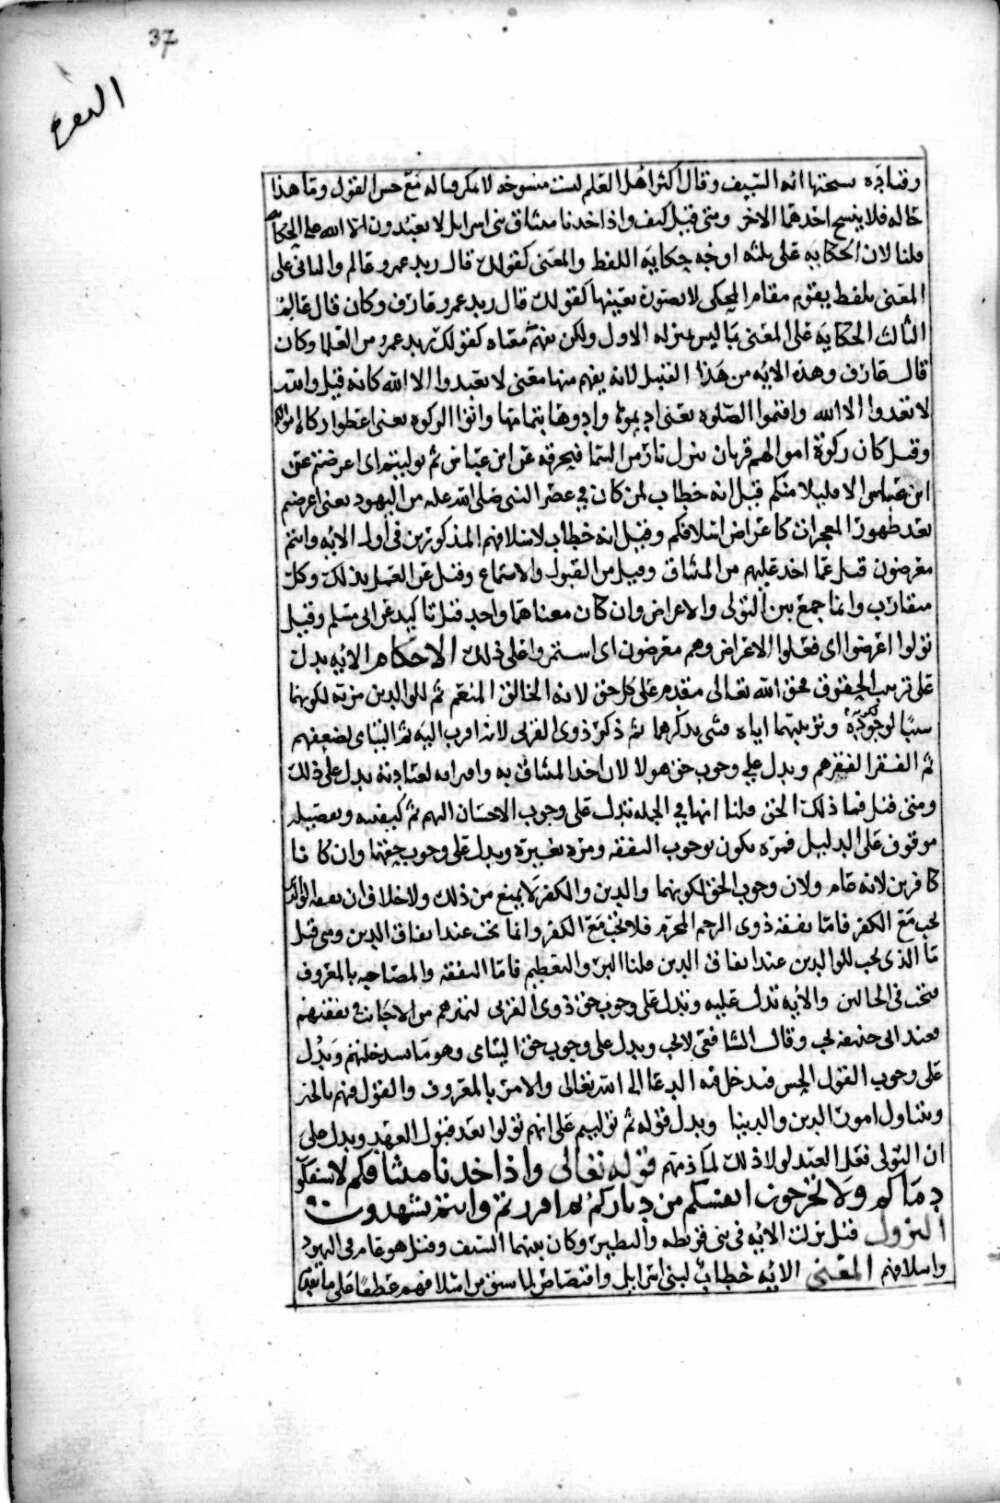 37
البقره
وقتاده نسختها ايه السيف وقال اكثر اهل العلم ليست منسوخه لامكان قتاله مع حسن القول وما هذا
حاله فلا ينسخ احدهما الاخر ومتى قيل كيف واذ اخذنا ميثاق بنى اسرايل لا تعبدون الا الله على الحكايه
قلنا لان الحكايه على ثلثه اوجه حكايه اللفظ والمعنى كقولك قال زيد عمرو قايم والثانى على
المعنى بلفظ يقوم مقام المحكى لا بصورته بعينها كقولك قال زيد عمرو عارف وكان قال عالم
الثالث الحكايه على المعنى بما ليس بمنزله الاول ولكن يفهم معناه كقولك زيد عمرو من العلما وكان
قال عارف وهذه الايه من هذا القبيل لانه يفهم منها معنى لا تعبدوا الا الله كانه قيل والله
لا تعبدوا الا الله واقيموا الصلوه يعنى اديموها وادوها بتمامها واتوا الزكوه يعنى اعطوا زكاه اموالكم
وقيل كان زكوة اموالهم قربان ينزل نار من السما فيحرقه عن ابن عباس ثم توليتم اى اعرضتم عن
ابن عباس الا قليلا منكم قيل انه خطاب لمن كان في عصر النبى صلى الله عليه من اليهود يعنى اعرضتم
بعد ظهور المعجزات كاعراض اسلافكم وقيل انه خطاب لاسلافهم المذكورين فى اول الايه وانتم
معرضون قيل عما اخذ عليهم من الميثاق وقيل من القبول والاستماع وقيل عن العمل بذلك وكل
متقارب وانما جمع بين التولى والاعراض وان كان معناهما واحد قيل تاكيد عن ابى مسلم وقيل
تولوا اعرضوا اى فعلوا الاعراض وهم معرضون اى استمروا على ذلك الاحكام الايه يدل
على ترتيب الحقوق فحق الله تعالى مقدم على كل حق لانه الخالق المنعم ثم للوالدين مزيه لكونهما
سببا لوجوده وتربيتهما اياه فثنى بذكرهما ثم ذكر ذوى القربى لانه اقرب اليه ثم اليتامى لضعفهم
ثم الفقرا لفقرهم ويدل على وجوب حق هولا لان اخذ الميثاق به وامرا به لعباده يدل على ذلك
ومتى قيل فما ذلك الحق قلنا انها في الجمله تدل على وجوب الاحسان اليهم ثم كيفيته وتفصيله
موقوف على الدليل فمره يكون بوجوب النفقه ومره بغيره ويدل على وجوب حقهما وان كانا
كافرين لانه عام ولان وجوب الحق لكونهما والدين والكفر لا يمنع من ذلك ولا خلاف ان نفقه الوالدين
تجب مع الكفر فاما نفقه ذوى الرحم المحرم فلا تجب مع الكفر وانما تجب عند اتفاق الدين ومتى قيل
ما الذى يجب للوالدين عند اتفاق الدين قلنا البر والتعظيم فاما النفقه والمصاحبه بالمعروف
فتجب فى الحالين والايه تدل عليه وتدل على وجوب حق ذوى القربى لتميزهم من الاجانب نفقتهم
فعند ابى حنيفه تجب وقال الشافعى لا تجب ويدل على وجوب حق اليتامى وهو ما سيدخلهم ويدل
على وجوب القول الحسن فيدخل فيه الدعا الى الله تعالى والامر بالمعروف والقول فيهم بالخير
ويتناول امور الدين والدنيا ويدل قوله ثم توليتم على انهم تولوا بعد قبول العهد ويدل على
ان التولى فعل العبد لولا ذلك لما ذمهم قوله تعالى واذ اخذنا ميثاقكم لا تسفكون
دماكم ولا تخرجون انفسكم من دياركم ثم اقررتم وانتم تشهدون
النزول قيل نزلت الايه فى بنى قريظه والنضير وكان بينهما السيف وقيل هو عام فى اليهود
واسلافهم المعنى الايه خطاب لبنى اسرايل واقتصاص لما سبق من اسلافهم عطفا على ما تقدم